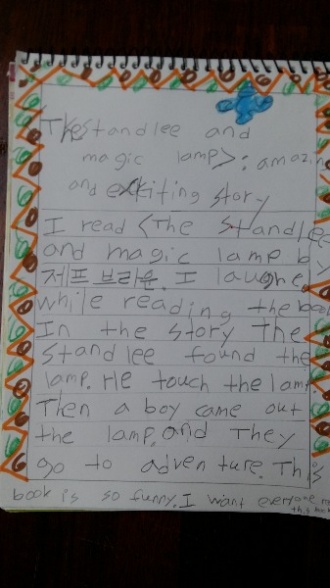 The standlee and
magic lamp>: amazin
and exkiting story
I read <The Standlee
and magic lamp b
제프 브라운. I laughe
while reading the boo
In the story The
standlee found the
lamp. He touch the lamp.
Then a boy came out
the lamp, and They
go to adventure. This
book is so funny. I want everyone
this